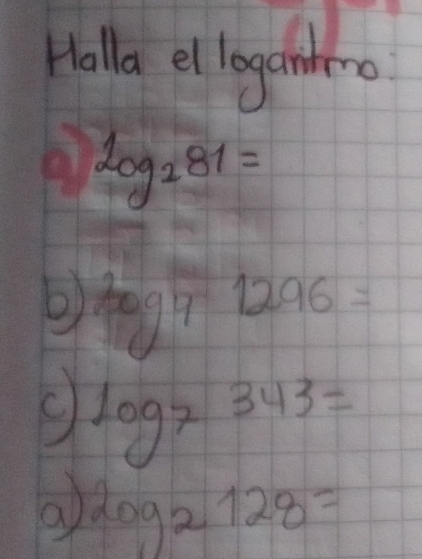 Halla el logaritmo:
a) log₂ 81 =
b) log₄ 1296 =
c) log₇ 343 =
a) log₂ 128 =